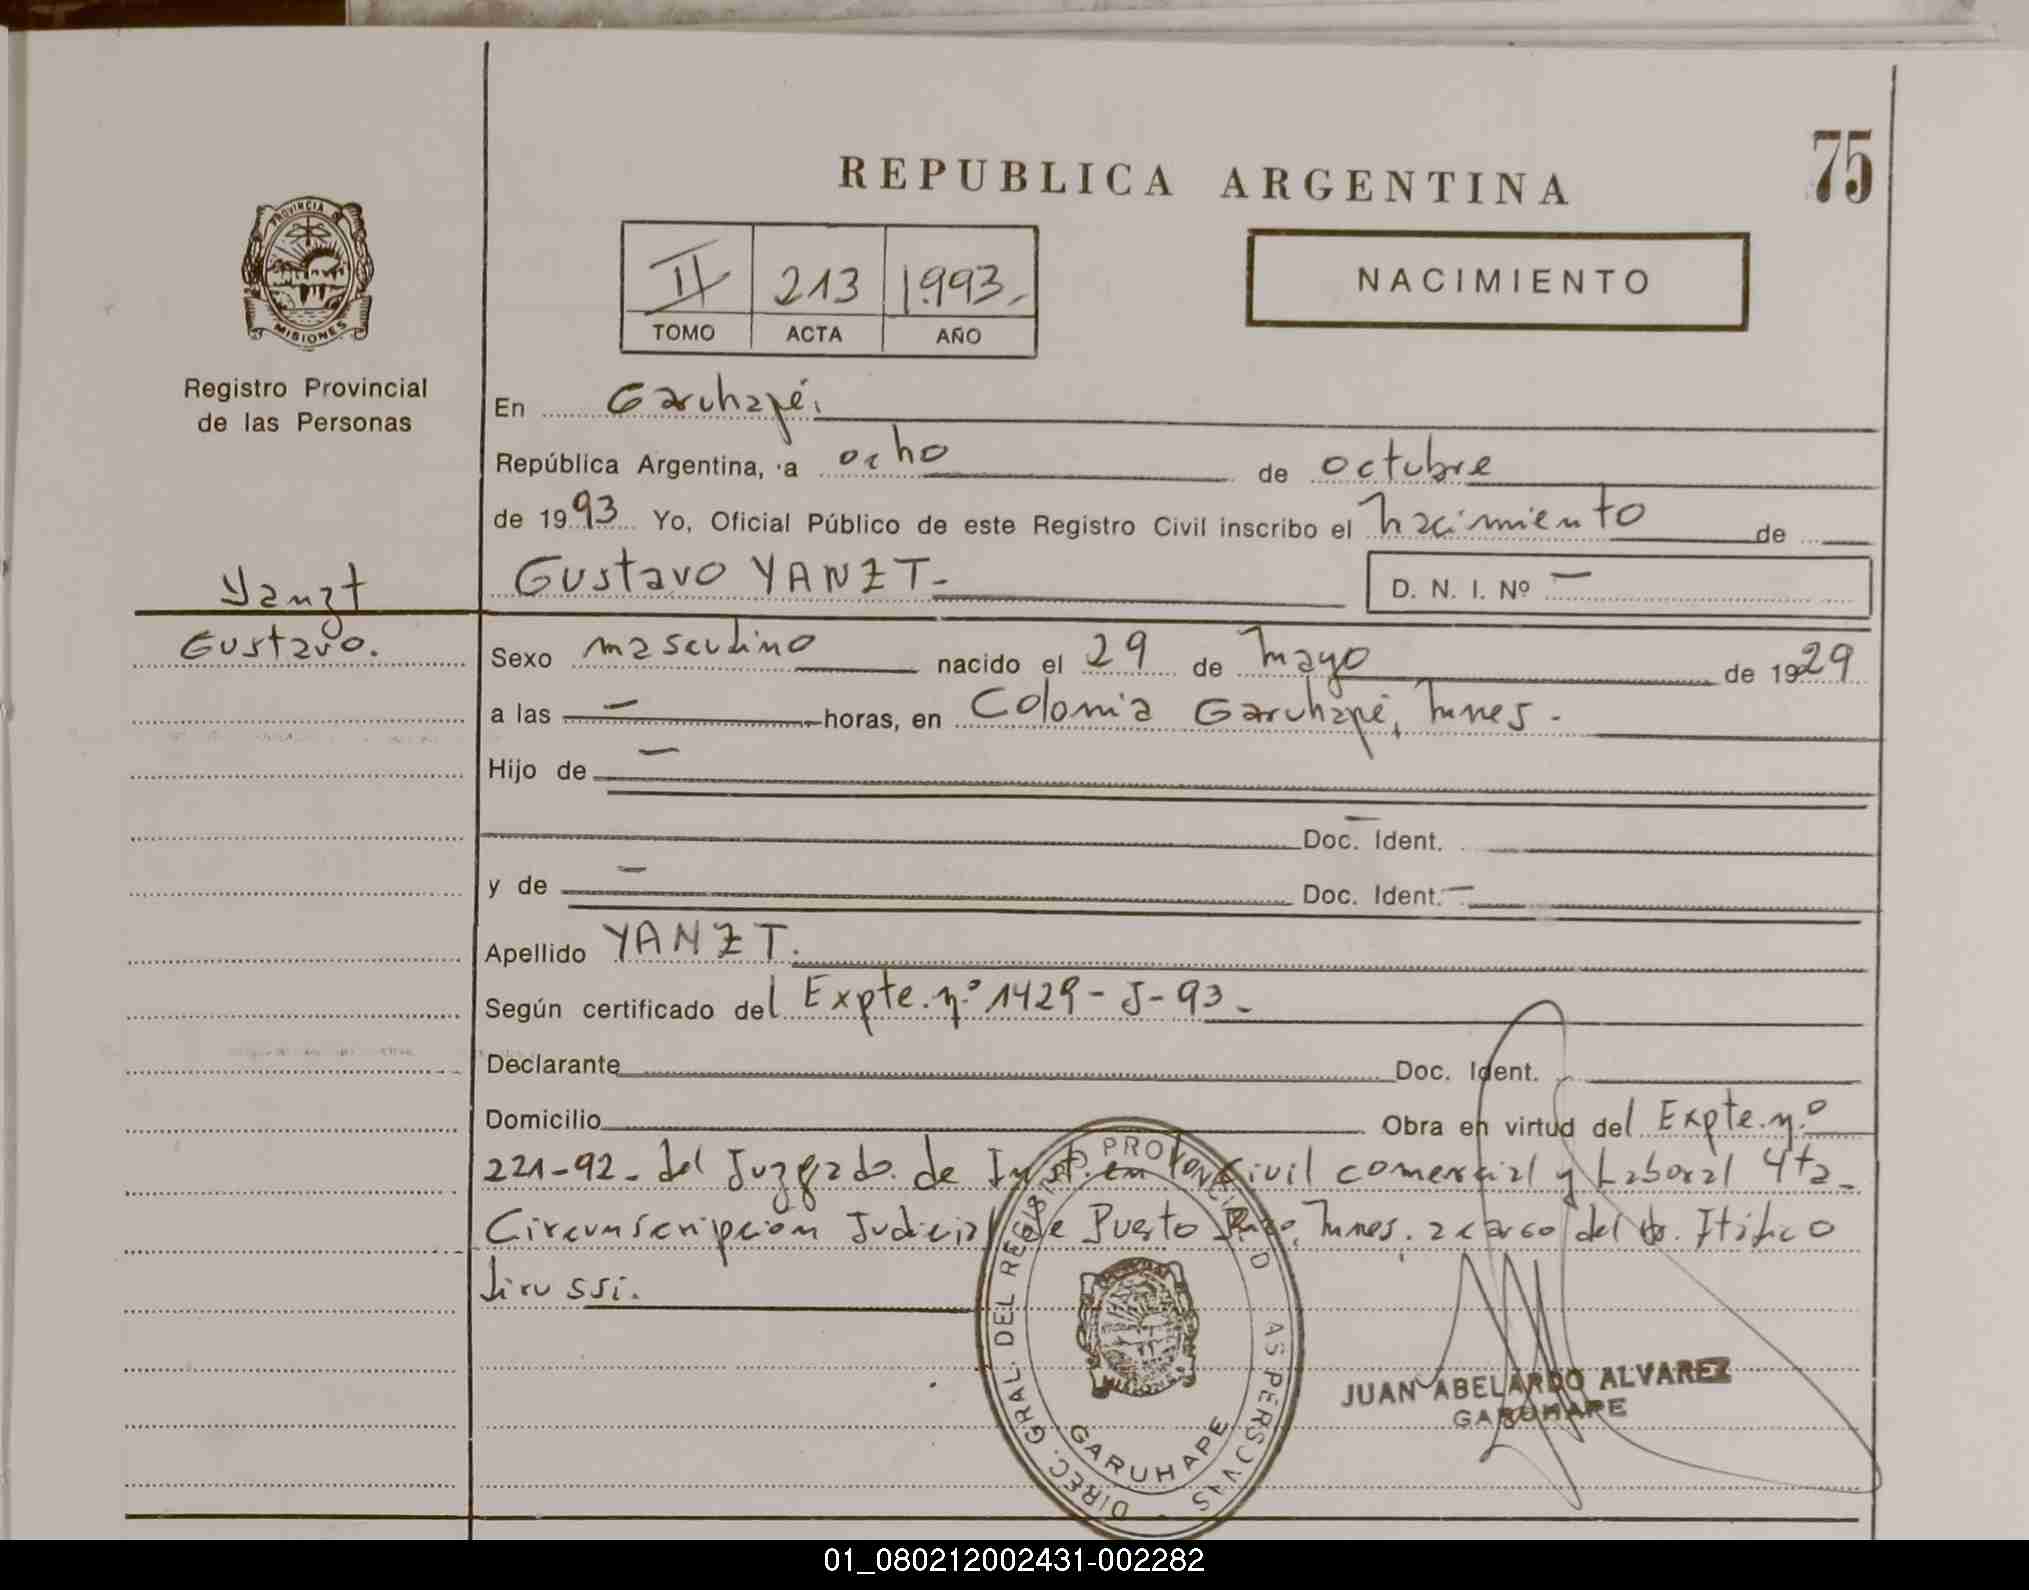 75
REPUBLICA ARGENTINA
PROVINCIA DE
MISIONES
II 213 1993.
TOMO ACTA AÑO
NACIMIENTO
Registro Provincial
de las Personas
En Garuhapé,
República Argentina, a ocho de octubre
de 1993 Yo, Oficial Público de este Registro Civil inscribo el nacimiento de
Yanzt
Gustavo.
Gustavo YANZT- D. N. I. Nº —
Sexo masculino nacido el 29 de mayo de 1929
a las — horas, en Colonia Garuhapé, Mnes.
Hijo de —
Doc. Ident. —
y de — Doc. Ident. —
Apellido YANZT.
Según certificado del Expte. nº 1429-J-93-
Declarante Doc. Ident.
Domicilio Obra en virtud del Expte. nº
221-92- del Juzgado de Inst. en lo Civil comercial y Laboral 4ta
Circunscripcion Judicial de Puerto Rico, Mnes. a cargo del dr. Itálico
DIREC. GRAL. DEL REGISTRO PROVINCIAL D AS PERSONAS
GARUHAPE
JUAN ABELARDO ALVAREZ
GARUHAPE
01_080212002431-002282